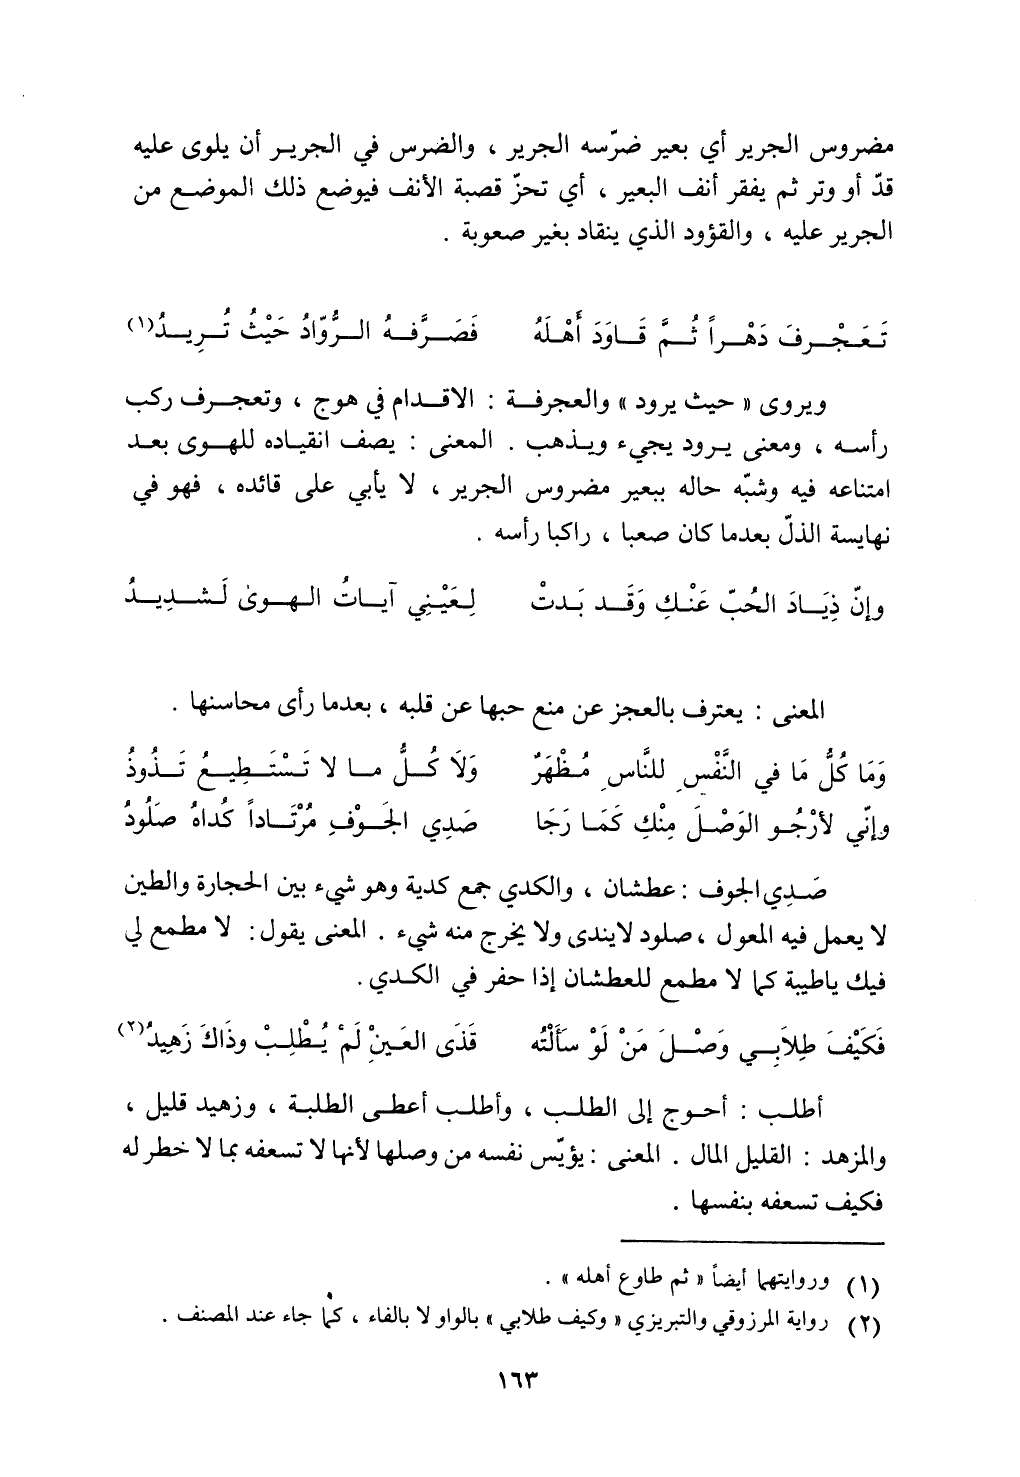 مضروس الجرير أي بعير ضرّسه الجرير ، والضرس في الجرير أن يلوى عليه
قدّ أو وتر ثم يفقر أنف البعير ، أي تحزّ قصبة الأنف فيوضع ذلك الموضع من
الجرير عليه ، والقؤود الذي ينقاد بغير صعوبة .
تَعَجْرفَ دَهْراً ثُمَّ قَاوَدَ أَهْلَهُ فَصَرَّفهُ الرُّوّادُ حَيْثُ تُرِيدُ(١)
ويروى « حيث يرود » والعجرفة : الاقدام في هوج ، وتعجرف ركب
رأسه ، ومعنى يرود يجيء ويذهب . المعنى : يصف انقياده للهوى بعد
امتناعه فيه وشبّه حاله ببعير مضروس الجرير ، لا يأبي على قائده ، فهو في
نهايسة الذلّ بعدما كان صعبا ، راكبا رأسه .
وإنّ ذِيَادَ الحُبّ عَنْكِ وَقَد بَدتْ لِعَيْنِي آيَاتُ الهوىٰ لَشدِيدُ
المعنى : يعترف بالعجز عن منع حبها عن قلبه ، بعدما رأى محاسنها .
وَمَا كُلُّ مَا في النَّفْسِ للنَّاسِ مُظْهَرٌ وَلَا كُلُّ ما لا تَسْتَطِيعُ تَذُوذُ
وإنّي لأرْجُو الوَصْلَ مِنْكِ كَمَا رَجَا صَدِي الجَوْفِ مُرْتَاداً كُداهُ صَلُودُ
صَدِي الجوف : عطشان ، والكدي جمع كدية وهو شيء بين الحجارة والطين
لا يعمل فيه المعول ، صلود لايندى ولا يخرج منه شيء . المعنى يقول : لا مطمع لي
فيك ياطيبة كما لا مطمع للعطشان إذا حفر في الكدي .
فَكَيْفَ طِلاَبِي وَصْلَ مَنْ لَوْ سَأَلْتُه قَذَى العَينْ لَمْ يُطْلِبْ وذَاكَ زَهِيدُ(٢)
أطلب : أحوج إلى الطلب ، وأطلب أعطى الطلبة ، وزهيد قليل ،
والمزهد : القليل المال . المعنى : يؤيّس نفسه من وصلها لأنها لا تسعفه بما لا خطر له
فكيف تسعفه بنفسها .
(١) وروايتهما أيضاً « ثم طاوع أهله » .
(٢) رواية المرزوقي والتبريزي « وكيف طلابي » بالواو لا بالفاء ، كما جاء عند المصنف .
١٦٣